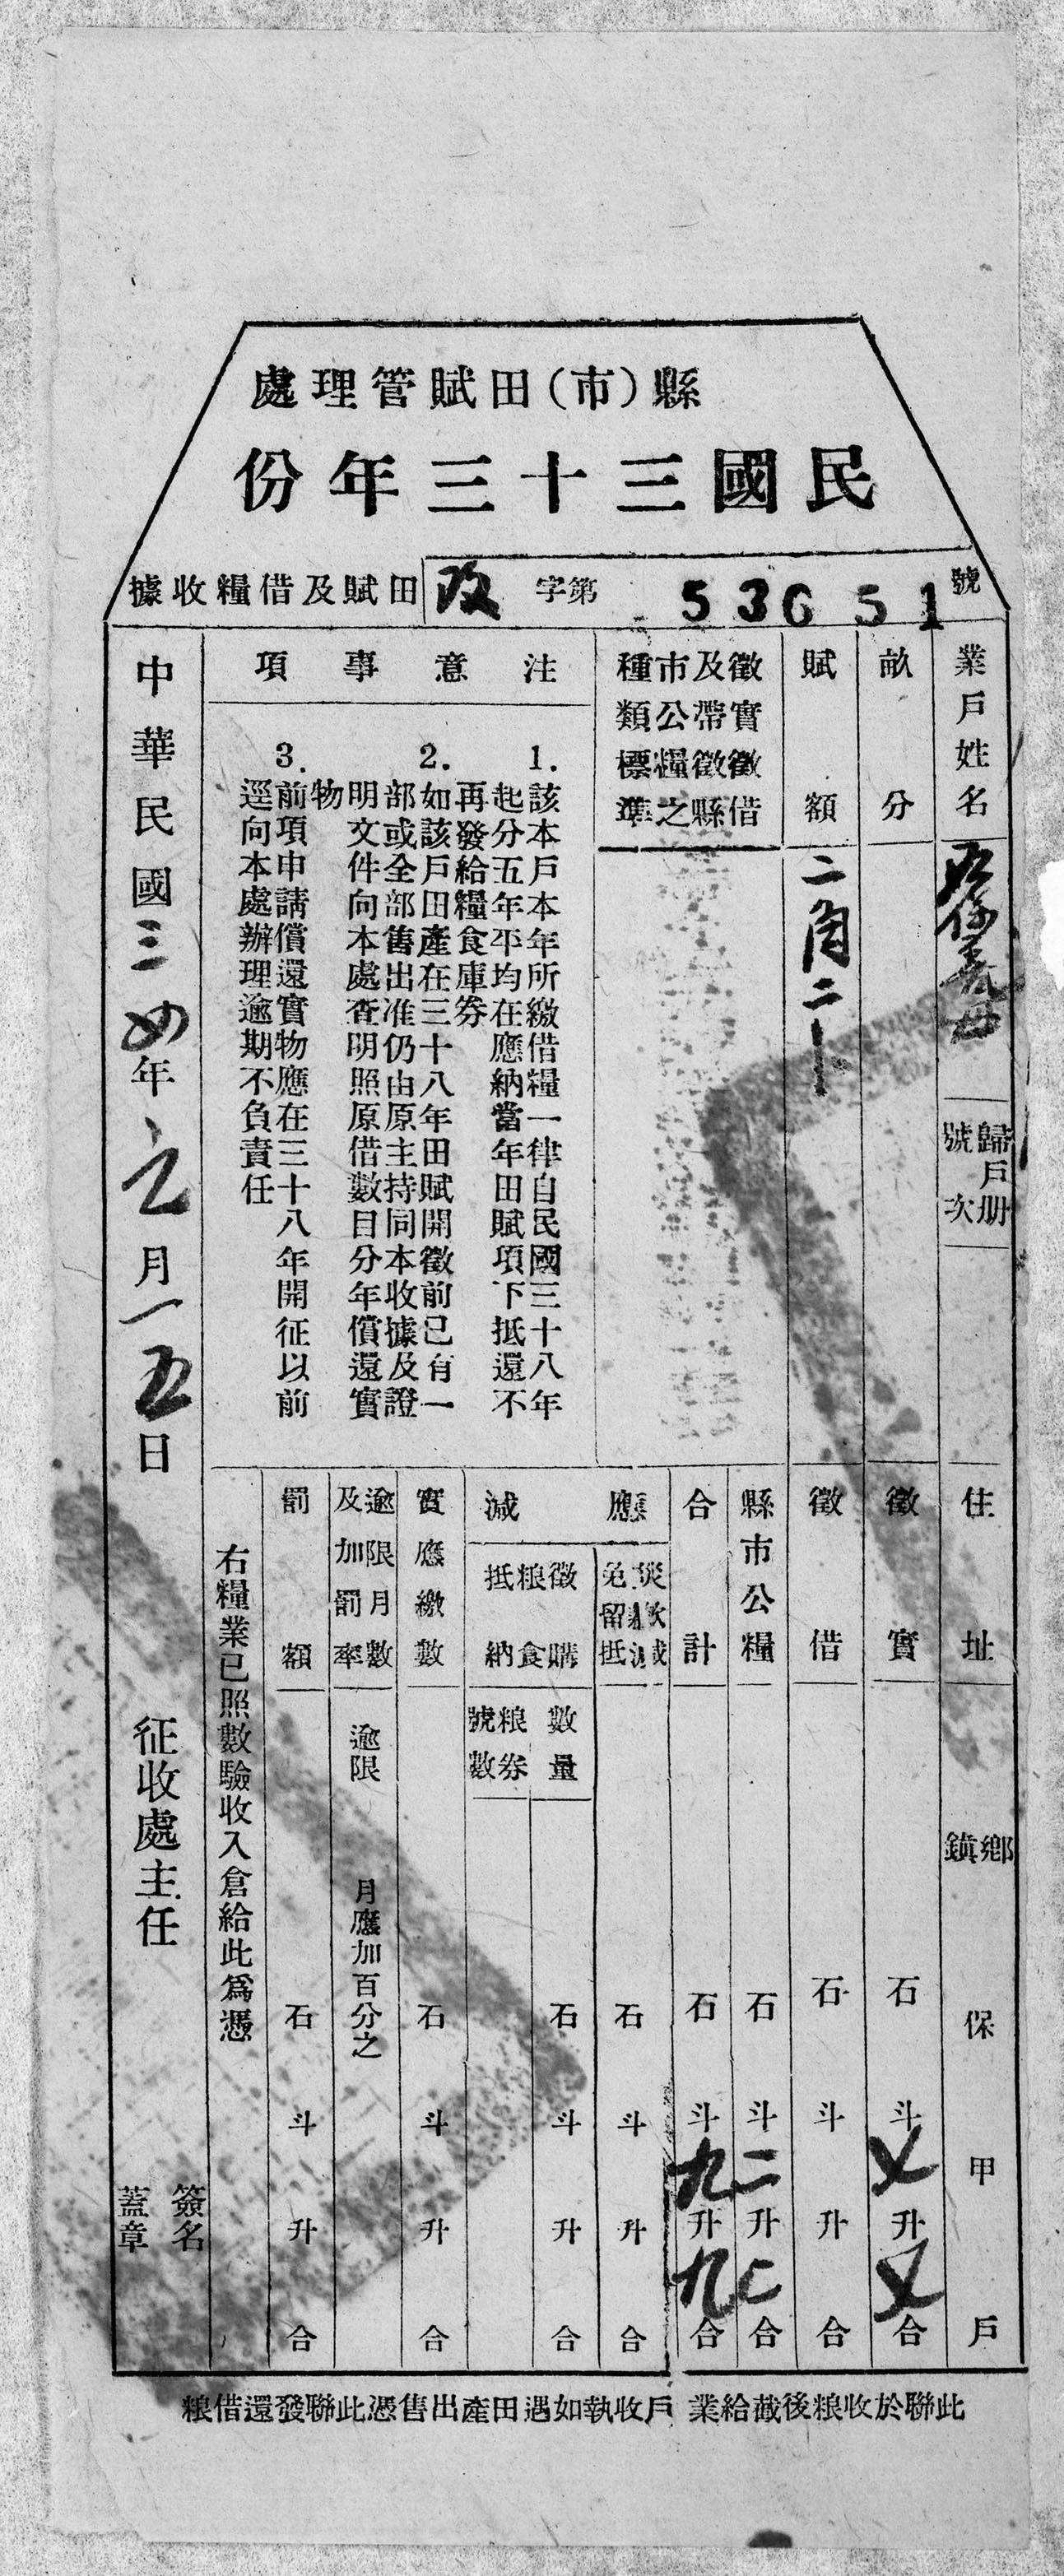 縣（市）田賦管理處
民國三十三年份
田賦及借糧收據
改字第53651號
業戶姓名
歸戶册號次
畝分
賦額
二角二卜
徵實徵借及帶徵縣市公糧之種類標準
注意事項
1.該本戶本年所繳借糧一律自民國三十八年
起分五年平均在應納當年田賦項下抵還不
再發給糧食庫券
2.如該戶田產在三十八年田賦開徵前已有一
部或全部售出准仍由原主持同本收據及證
明文件向本處查明照原借數目分年償還實
物
3.前項申請償還實物應在三十八年開征以前
逕向本處辦理逾期不負責任
住址
鄉鎮
保
甲
戶
徵實
石
斗
㐅升
㐅合
徵借
石
斗
升
合
縣市公糧
石
斗
二升
合
合計
石
斗
九升
九合
應減
災歉減免留抵
石
斗
升
合
徵購粮食抵納
數量
石
斗
升
合
粮券號數
實應繳數
石
斗
升
合
逾限月數及加罰率
逾限
月應加百分之
罰額
石
斗
升
合
右糧業已照數驗收入倉給此爲憑
中華民國三四年元月一五日
征收處主任
簽名
蓋章
此聯於收粮後截給業戶收執如遇田產出售憑此聯發還借粮